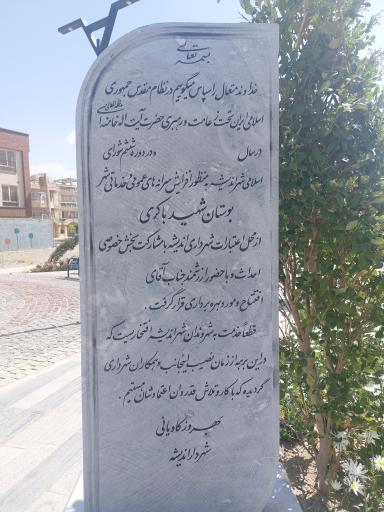 بسمه تعالی
خداوند متعال را سپاس میگوییم در نظام مقدس جمهوری
اسلامی ایران تحت زعامت و رهبری حضرت آیت اله خامنه ای
در سال و در دوره ششم شورای
اسلامی شهر اندیشه به منظور افزایش سرانه های عمومی و خدماتی شهر
بوستان شهید باکری
از محل اعتبارات شهرداری اندیشه با مشارکت بخش خصوصی
احداث و با حضور ارزشمند جناب آقای
افتتاح و مورد بهره برداری قرار گرفت.
قطعاً خدمت به شهروندان شهر اندیشه افتخاریست که
در این برهه از زمان نصیب اینجانب و همکاران شهرداری
گردیده که با کار و تلاش قدردان اعتمادشان هستیم.
بهروز کاویانی
شهردار اندیشه